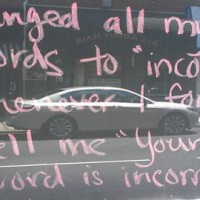 anged all my
ords to "inco
henever I for
ell me "Your
word is incorr